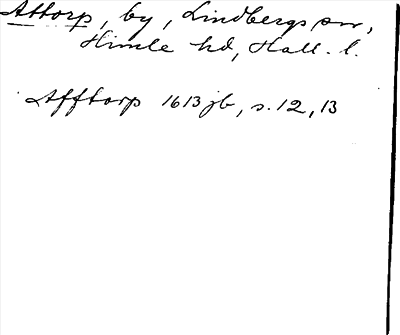 Attorp, by, Lindbergs sn,
Himle hd, Hall. l.
Afftorp 1613 jb, s. 12, 13